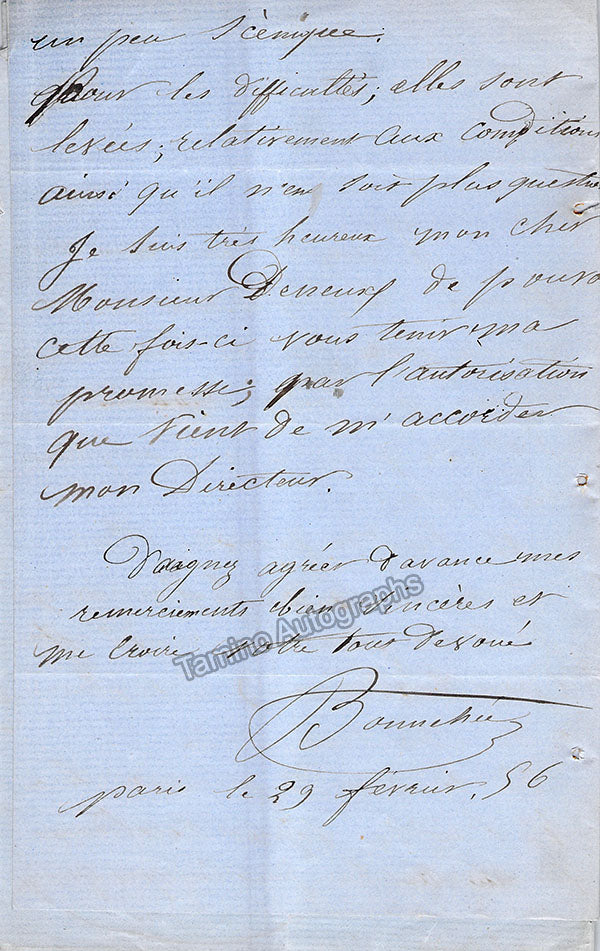 un peu scénique.
Pour les difficultés; elles sont
levées; relativement aux conditions
ainsi qu'il n'en soit plus question
Je suis très heureux mon cher
Monsieur de pouvo
cette fois-ci vous tenir ma
promesse; par l'autorisation
que vient de m'accorder
mon Directeur.
Daignez agréer d'avance mes
remerciements bien sincères et
me croire votre tous devoué
Bonnehée
paris le 29 février. 56
Tamino Autographs